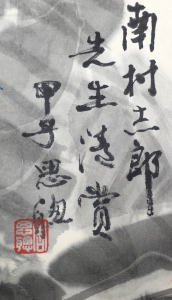 南村志郎
先生清赏
甲子思聪